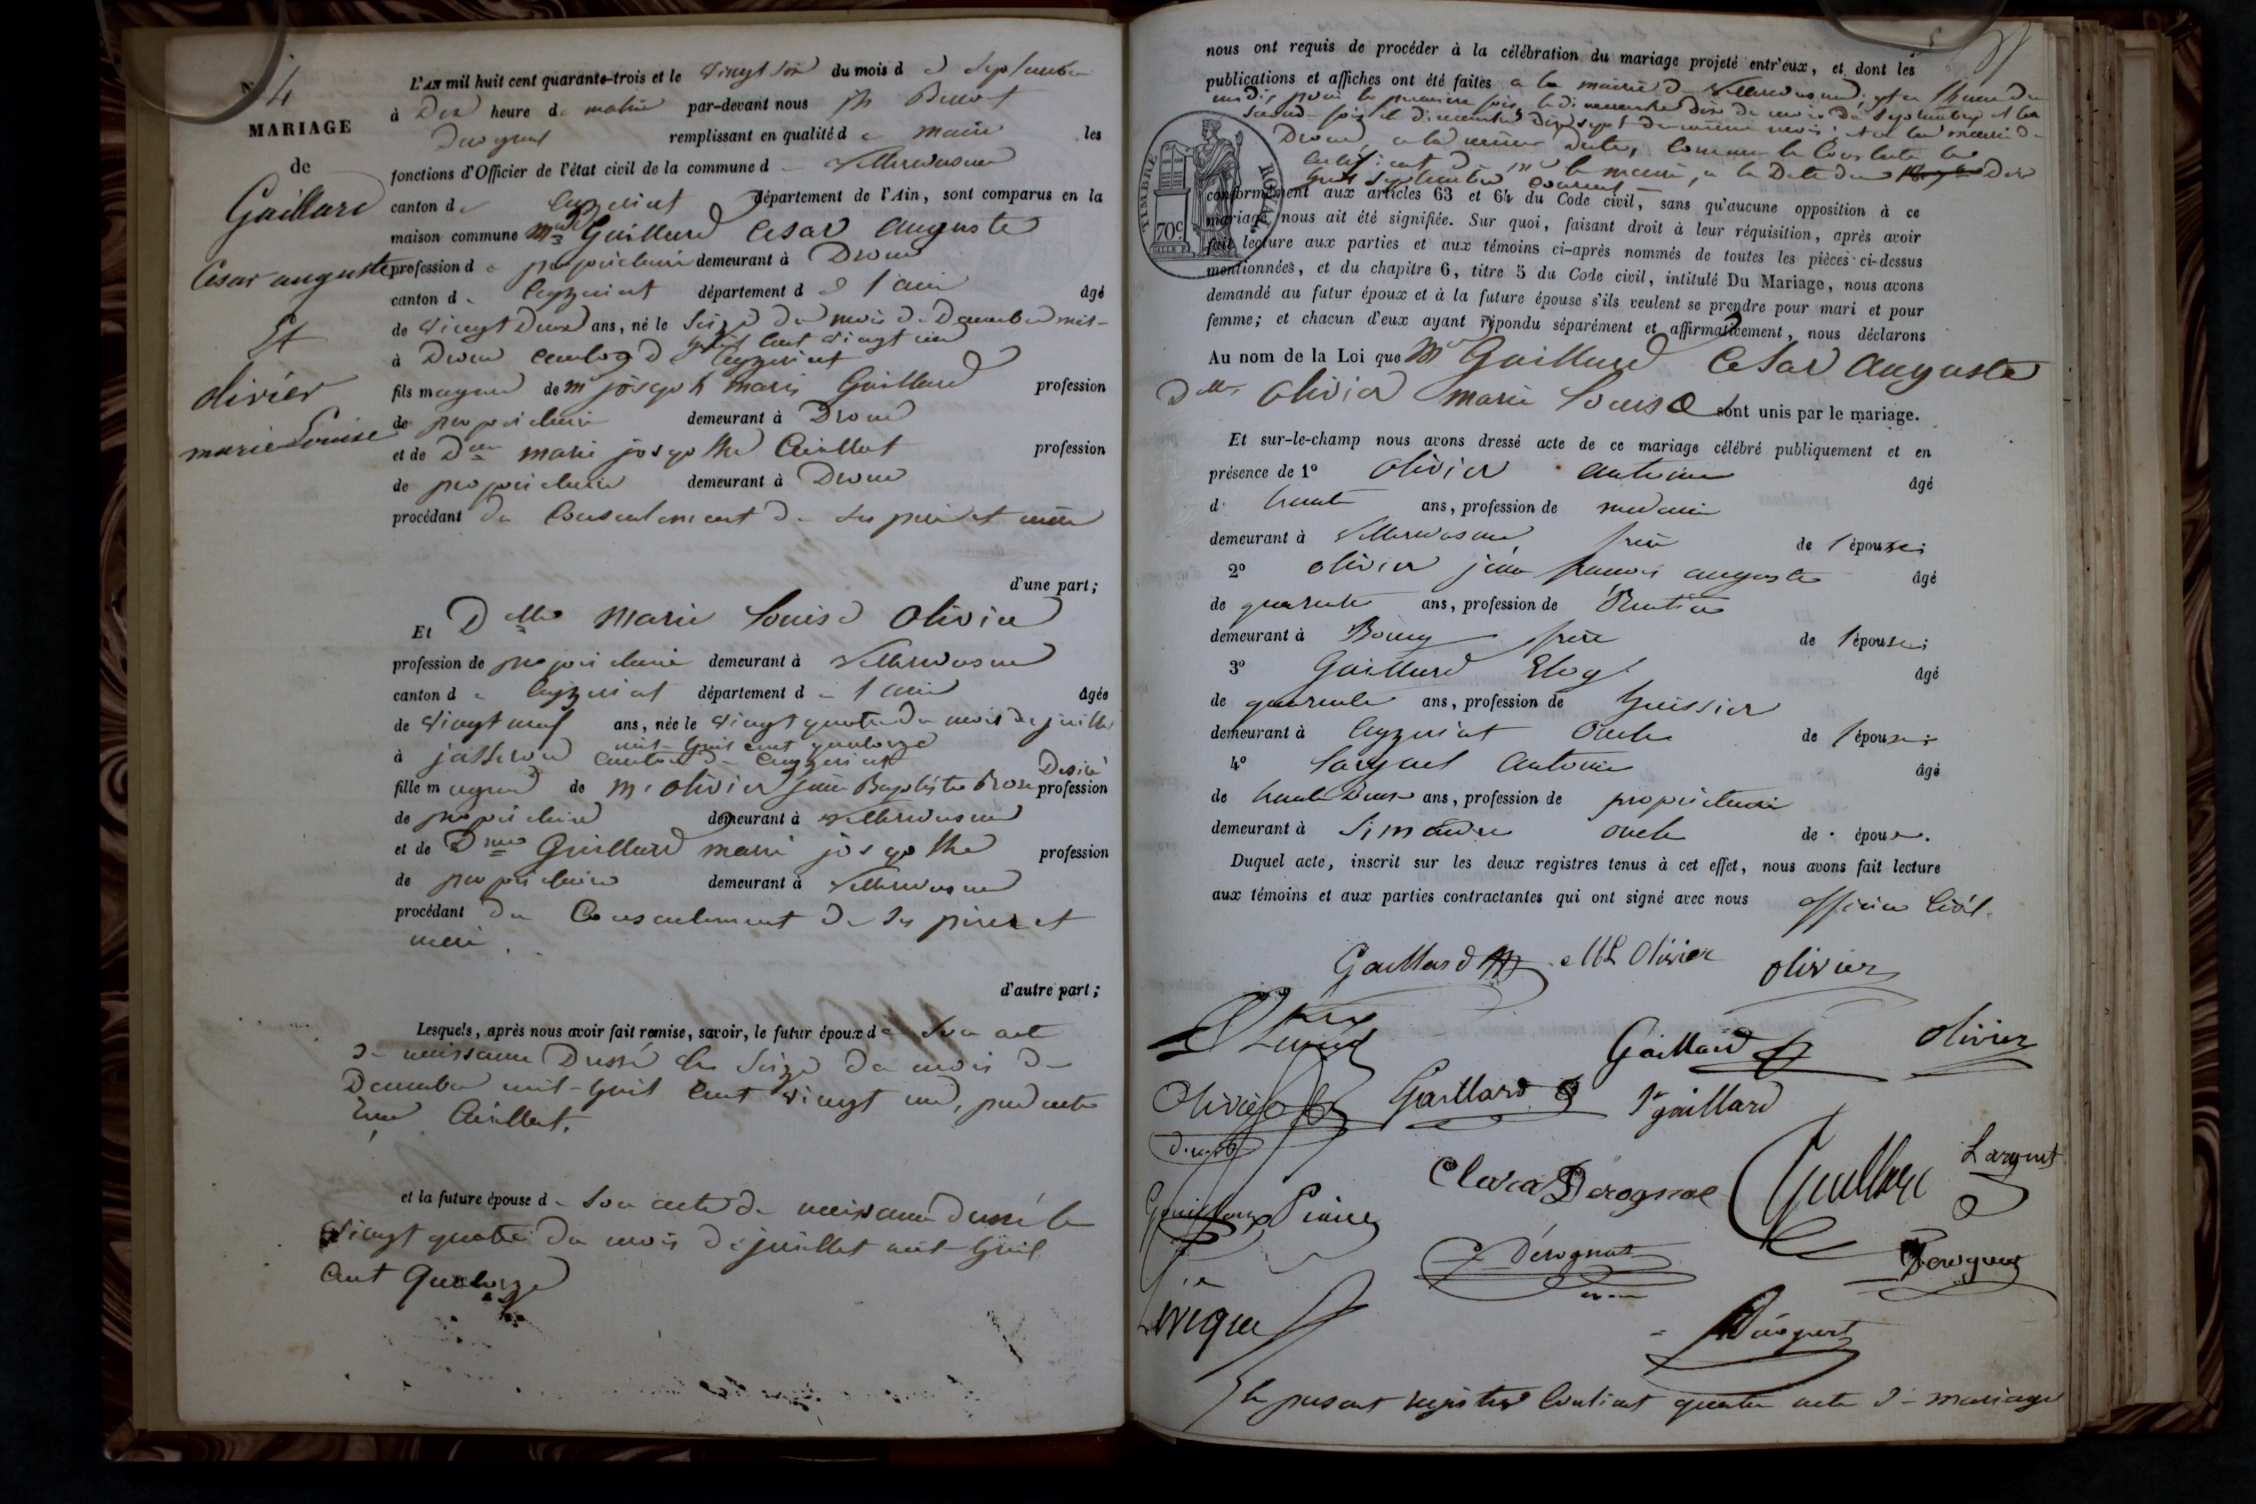 N° 4
MARIAGE
de
Gaillard
Cesar auguste
Et
olivier
marie Louise
L'AN mil huit cent quarante-trois et le vingt six du mois d e Septembre
à Dix heure de matin par-devant nous
remplissant en qualité d e maire les
fonctions d'Officier de l'état civil de la commune d Villereversure
canton de Ceyzeriat département de l'Ain, sont comparus en la
maison commune Mr Gaillard Cesar auguste
profession d e propriétaire demeurant à Drom
canton de Ceyzeriat département d e l'ain âgé
de vingt deux ans, né le Seize du mois de Décembre mil
huit cent vingt un
à Drom canton de Ceyzeriat
fils majeur de mr joseph marie Gaillard profession
de propriétaire demeurant à Drom
et de Dme marie josephte profession
de propriétaire demeurant à Drom
procédant du Consentement de ses père et mère
d'une part;
Et Dlle Marie Louise Olivier
profession de propriétaire demeurant à Villereversure
canton de Ceyzeriat département de l'ain âgée
de vingt neuf ans, née le vingt quatre du mois de juillet
mil huit cent quatorze
à jasseron canton de Ceyzeriat
fille majeure de Mr olivier jean Baptiste profession
de propriétaire demeurant à Villereversure
et de Dme Gaillard marie josephte profession
de propriétaire demeurant à Villereversure
procédant du Consentement de ses père et
mère
d'autre part;
Lesquels, après nous avoir fait remise, savoir, le futur époux de Son acte
de naissance Dressé le Seize du mois de
Décembre mil huit cent vingt un,
et la future épouse de Son acte de naissance dressé le
vingt quatre du mois de juillet mil huit
cent quatorze
nous ont requis de procéder à la célébration du mariage projeté entr'eux, et dont les
publications et affiches ont été faites a la mairie de Villereversure
midi, pour la première fois le dimanche dix du mois de Septembre et la
seconde fois le dimanche dix sept du même mois; et a la mairie de
Drom, a la même date, comme le Constate le
certificat de mr le maire, a la Date du
Septembre courant
conformément aux articles 63 et 64 du Code civil, sans qu'aucune opposition à ce
mariage nous ait été signifiée. Sur quoi, faisant droit à leur réquisition, après avoir
fait lecture aux parties et aux témoins ci-après nommés de toutes les pièces ci-dessus
mentionnées, et du chapitre 6, titre 5 du Code civil, intitulé Du Mariage, nous avons
demandé au futur époux et à la future épouse s'ils veulent se prendre pour mari et pour
femme; et chacun d'eux ayant répondu séparément et affirmativement, nous déclarons
TIMBRE ROYAL
70c
Au nom de la Loi que Mr Gaillard Cesar Auguste
Dlle Olivier marie Louise sont unis par le mariage.
Et sur-le-champ nous avons dressé acte de ce mariage célébré publiquement et en
présence de 1° Olivier antoine âgé
de trente ans, profession de medecin
demeurant à Villereversure frère de l'épouse;
2° olivier jean francois auguste âgé
de quarante ans, profession de Rentier
demeurant à Bourg frère de l'épouse;
3° Gaillard Eloy âgé
de quarante ans, profession de huissier
demeurant à Ceyzeriat Oncle de l'épouse;
4° antoine âgé
de trente Deux ans, profession de propriétaire
demeurant à Simandre oncle de épouse.
Duquel acte, inscrit sur les deux registres tenus à cet effet, nous avons fait lecture
aux témoins et aux parties contractantes qui ont signé avec nous officier Civil
Gaillard ML Olivier olivier
Gaillard olivier
Olivier Gaillard gaillard
Clara Derognat Gaillard
Dérognat
Le présent registre Contient quatre acte de mariage